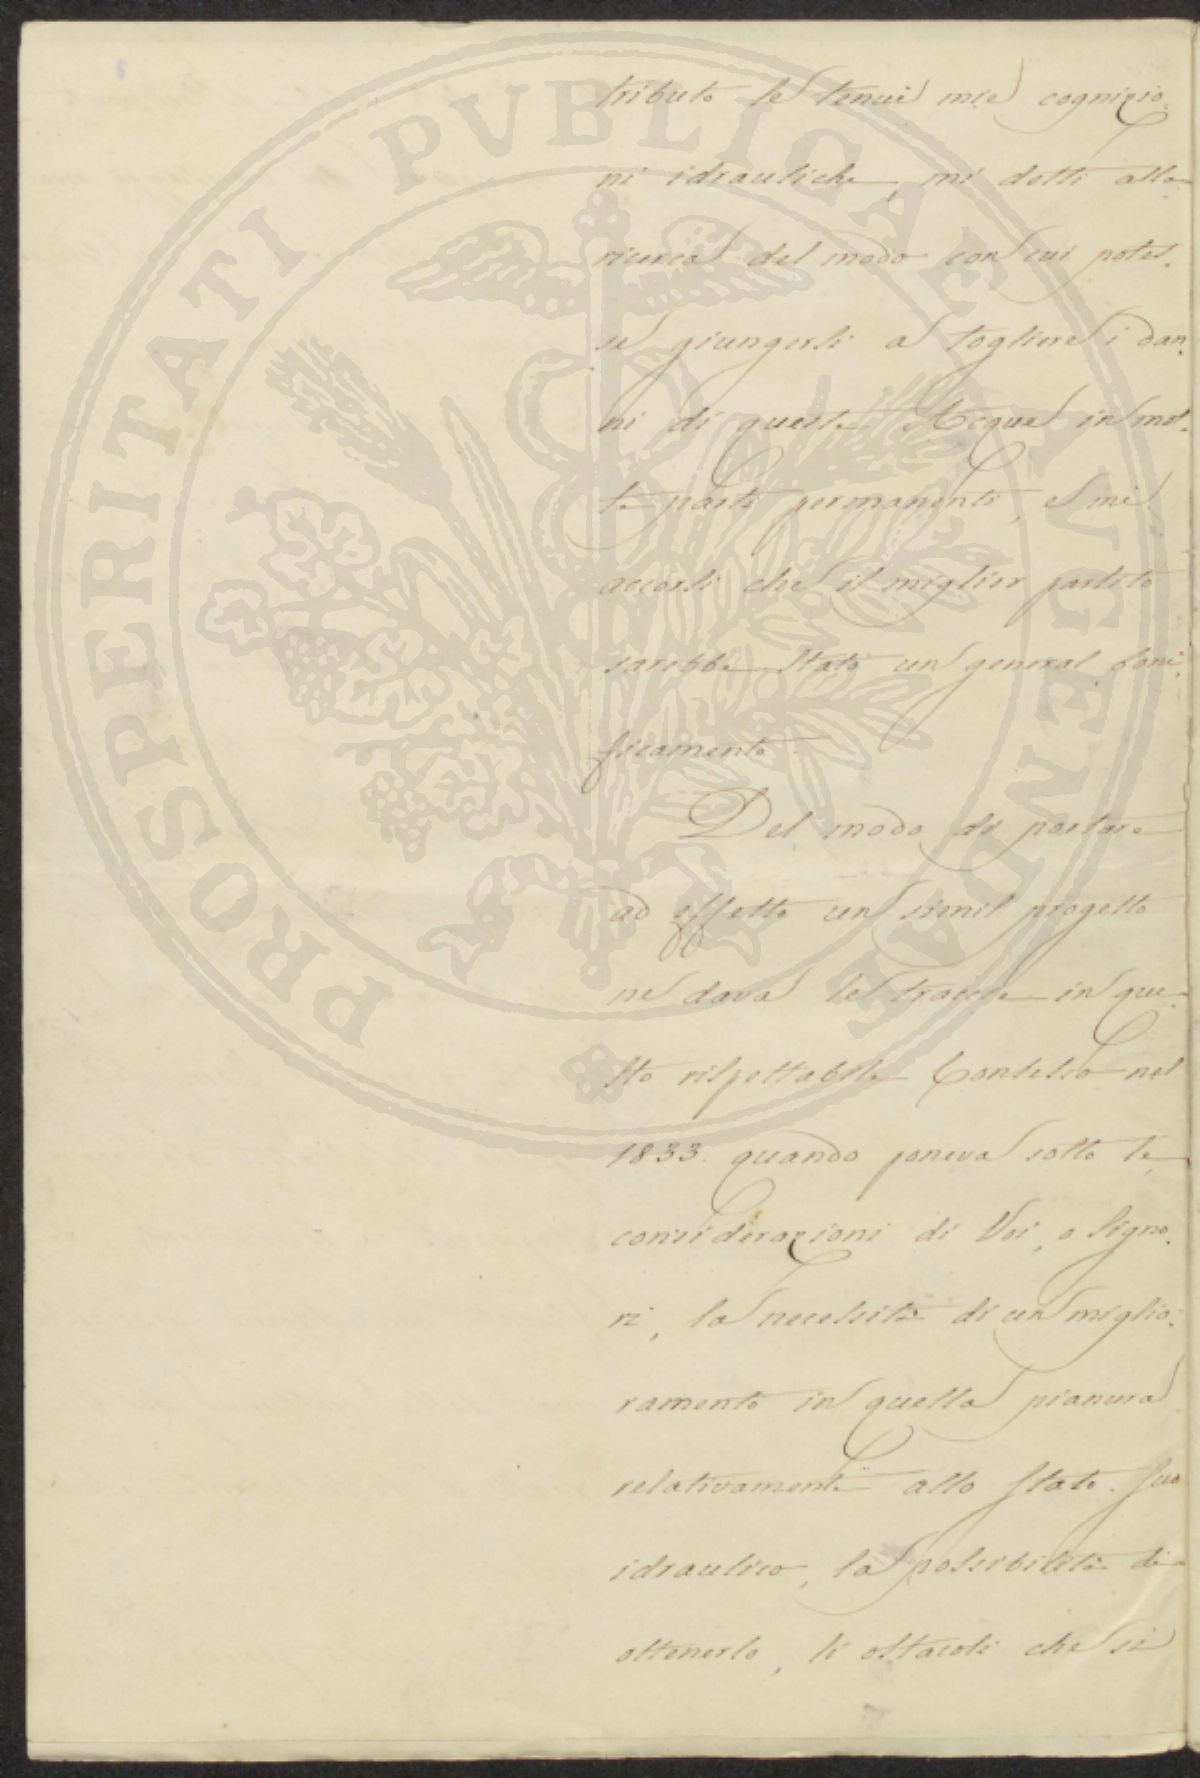 PROSPERITATI PVBLICAE AVGENDAE
tributo le tenui mie cognizio-
ni idrauliche, mi detti alla
ricerca del modo con cui potes-
se giungersi a togliere i dan-
ni di queste Acque in mol-
te parti permanenti, e mi
accorsi che il miglior partito
sarebbe stato un general boni-
ficamento.
Del modo di portare
ad effetto un simil progetto
ne dava le traccie in que-
sto rispettabile Consesso nel
1833. quando poneva sotto le
considerazioni di Voi, o Signo-
ri, la necessità di un miglio-
ramento in quella pianura
relativamente allo stato suo
idraulico, la possibilità di
ottenerlo, li ostacoli che si